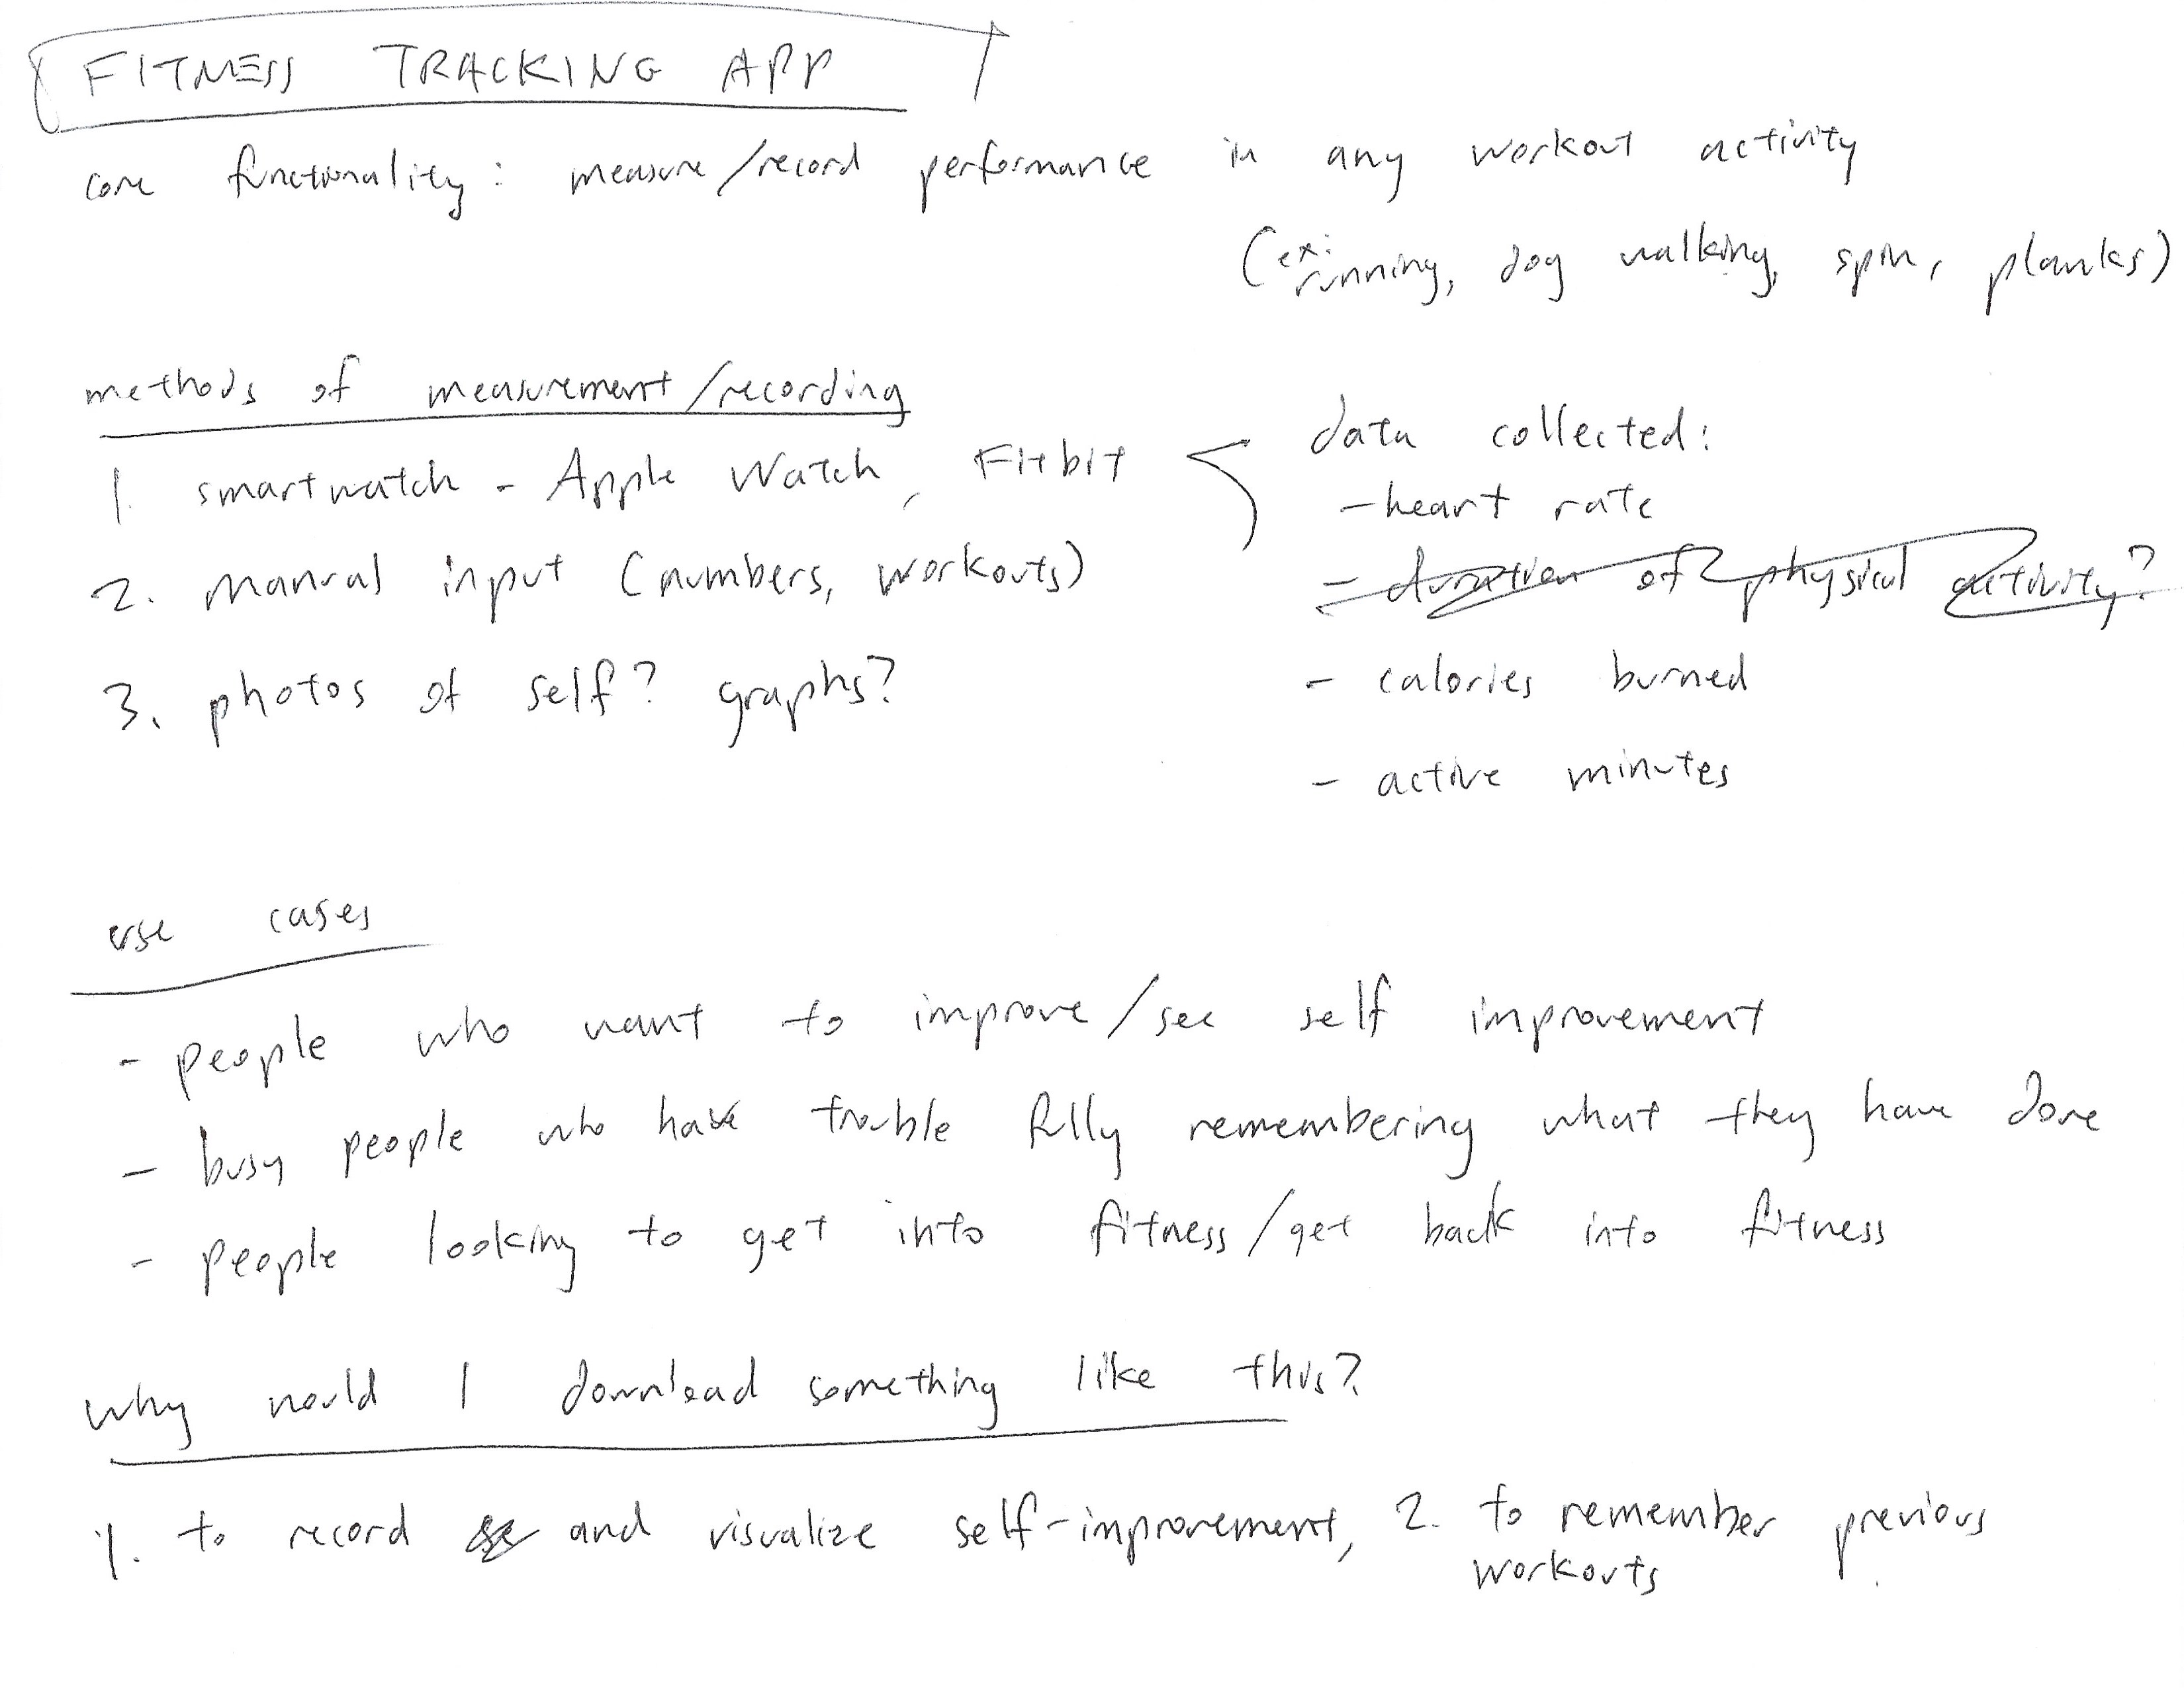 FITNESS TRACKING APP
core functionality: measure/record performance in any workout activity
(ex: running, dog walking, spin, planks)
methods of measurement/recording
1. smartwatch - Apple Watch, Fitbit
2. Manual input (numbers, workouts)
3. photos of self? graphs?
data collected:
- heart rate
- duration of physical activity?
- calories burned
- active minutes
use cases
- people who want to improve/see self improvement
- busy people who have trouble fully remembering what they have done
- people looking to get into fitness/get back into fitness
why would I download something like this?
1. to record and visualize self-improvement, 2. to remember previous
workouts